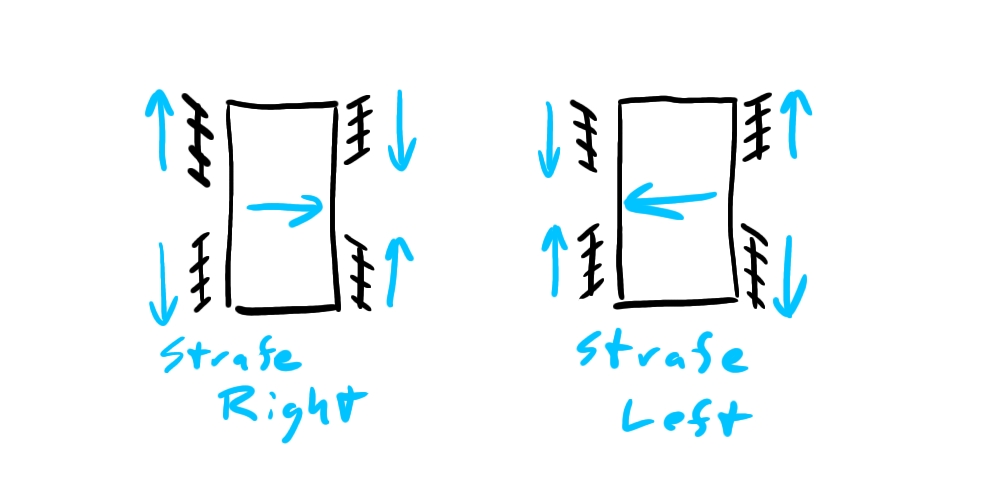 Strafe
Right
Strafe
Left